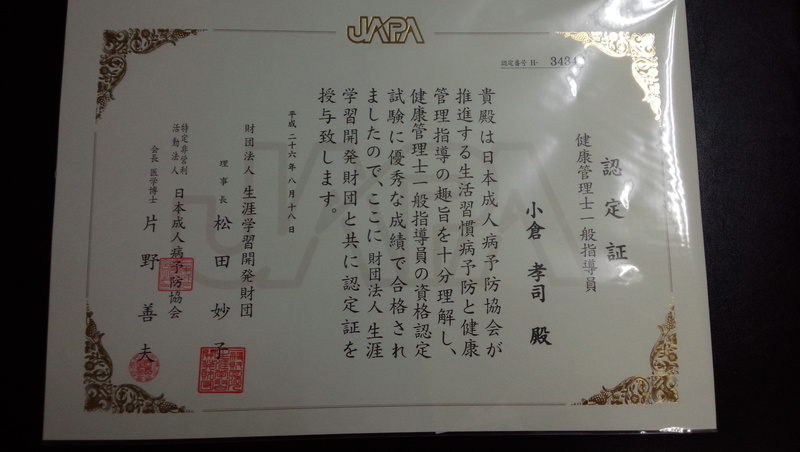 JAPA
認定番号 H- 3434
認定証
健康管理士一般指導員
小倉 孝司 殿
貴殿は日本成人病予防協会が
推進する生活習慣病予防と健康
管理指導の趣旨を十分理解し、
健康管理士一般指導員の資格認定
試験に優秀な成績で合格され
ましたので、ここに財団法人生涯
学習開発財団と共に認定証を
授与致します。
平成二十六年八月十八日
財団法人 生涯学習開発財団
理事長 松田妙子
特定非営利
活動法人 日本成人病予防協会
会長 医学博士 片野善夫